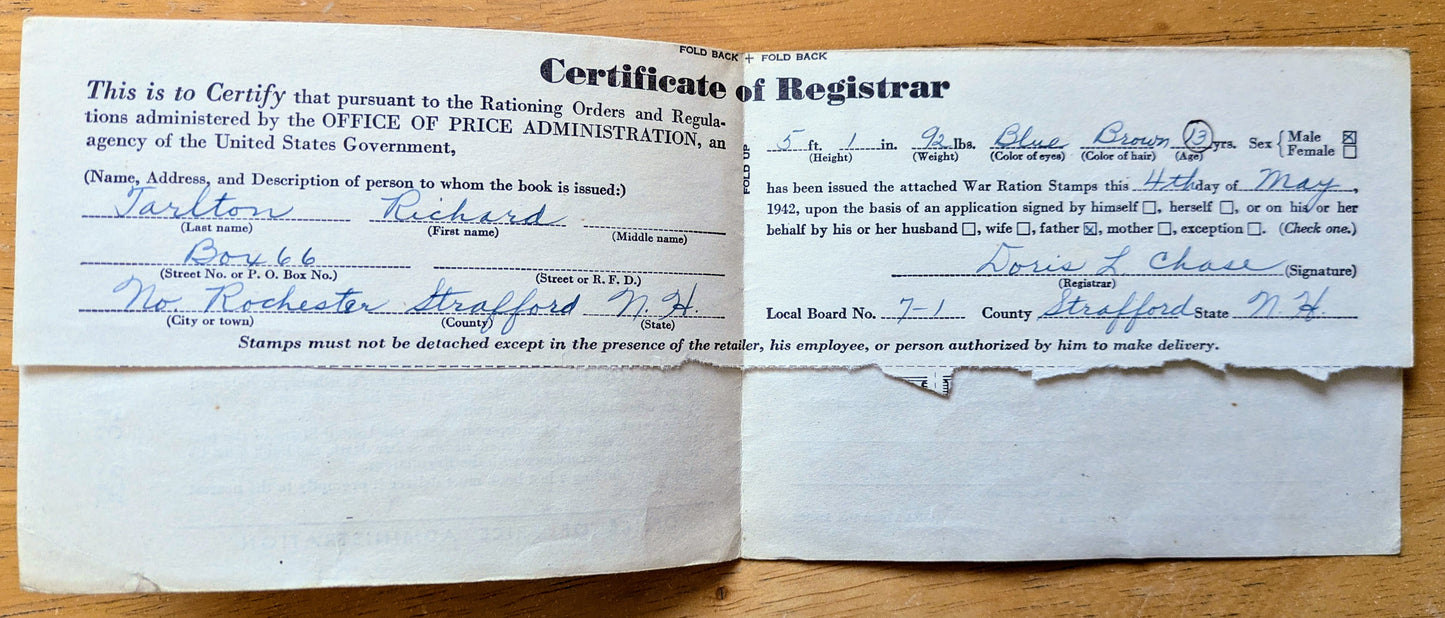 FOLD BACK + FOLD BACK
Certificate of Registrar
This is to Certify that pursuant to the Rationing Orders and Regula-
tions administered by the OFFICE OF PRICE ADMINISTRATION, an
agency of the United States Government,
(Name, Address, and Description of person to whom the book is issued:)
Tarlton Richard
(Last name) (First name) (Middle name)
Box 66
(Street No. or P. O. Box No.) (Street or R. F. D.)
No. Rochester Strafford N. H.
(City or town) (County) (State)
FOLD UP
5 ft. 1 in. 92 lbs. Blue Brown 13 yrs. Sex { Male ☒
Female ☐
(Height) (Weight) (Color of eyes) (Color of hair) (Age)
has been issued the attached War Ration Stamps this 4th day of May,
1942, upon the basis of an application signed by himself ☐, herself ☐, or on his or her
behalf by his or her husband ☐, wife ☐, father ☒, mother ☐, exception ☐. (Check one.)
Doris L. Chase (Signature)
(Registrar)
Local Board No. 7-1 County Strafford State N. H.
Stamps must not be detached except in the presence of the retailer, his employee, or person authorized by him to make delivery.